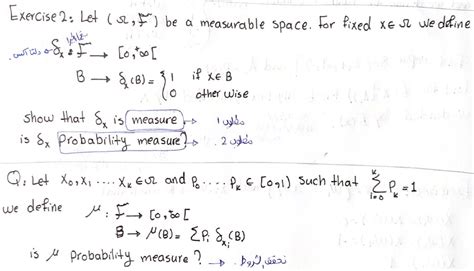 Exercise 2: Let (Ω, F) be a measurable space. For fixed x ∈ Ω we define
δₓ: F → [0, +∞[
B → δₓ(B) = { 1 if x ∈ B
0 otherwise
show that δₓ is measure → مطلوب 1
is δₓ probability measure? → مطلوب 2
Q: Let x₀, x₁ .... xₖ ∈ Ω and p₀ .... pₖ ∈ [0,1) such that Σ Pₖ = 1
i=0 k
we define μ: F → [0, ∞[
B → μ(B) = Σ Pᵢ δₓᵢ(B)
is μ probability measure? → نحقق الشروط.